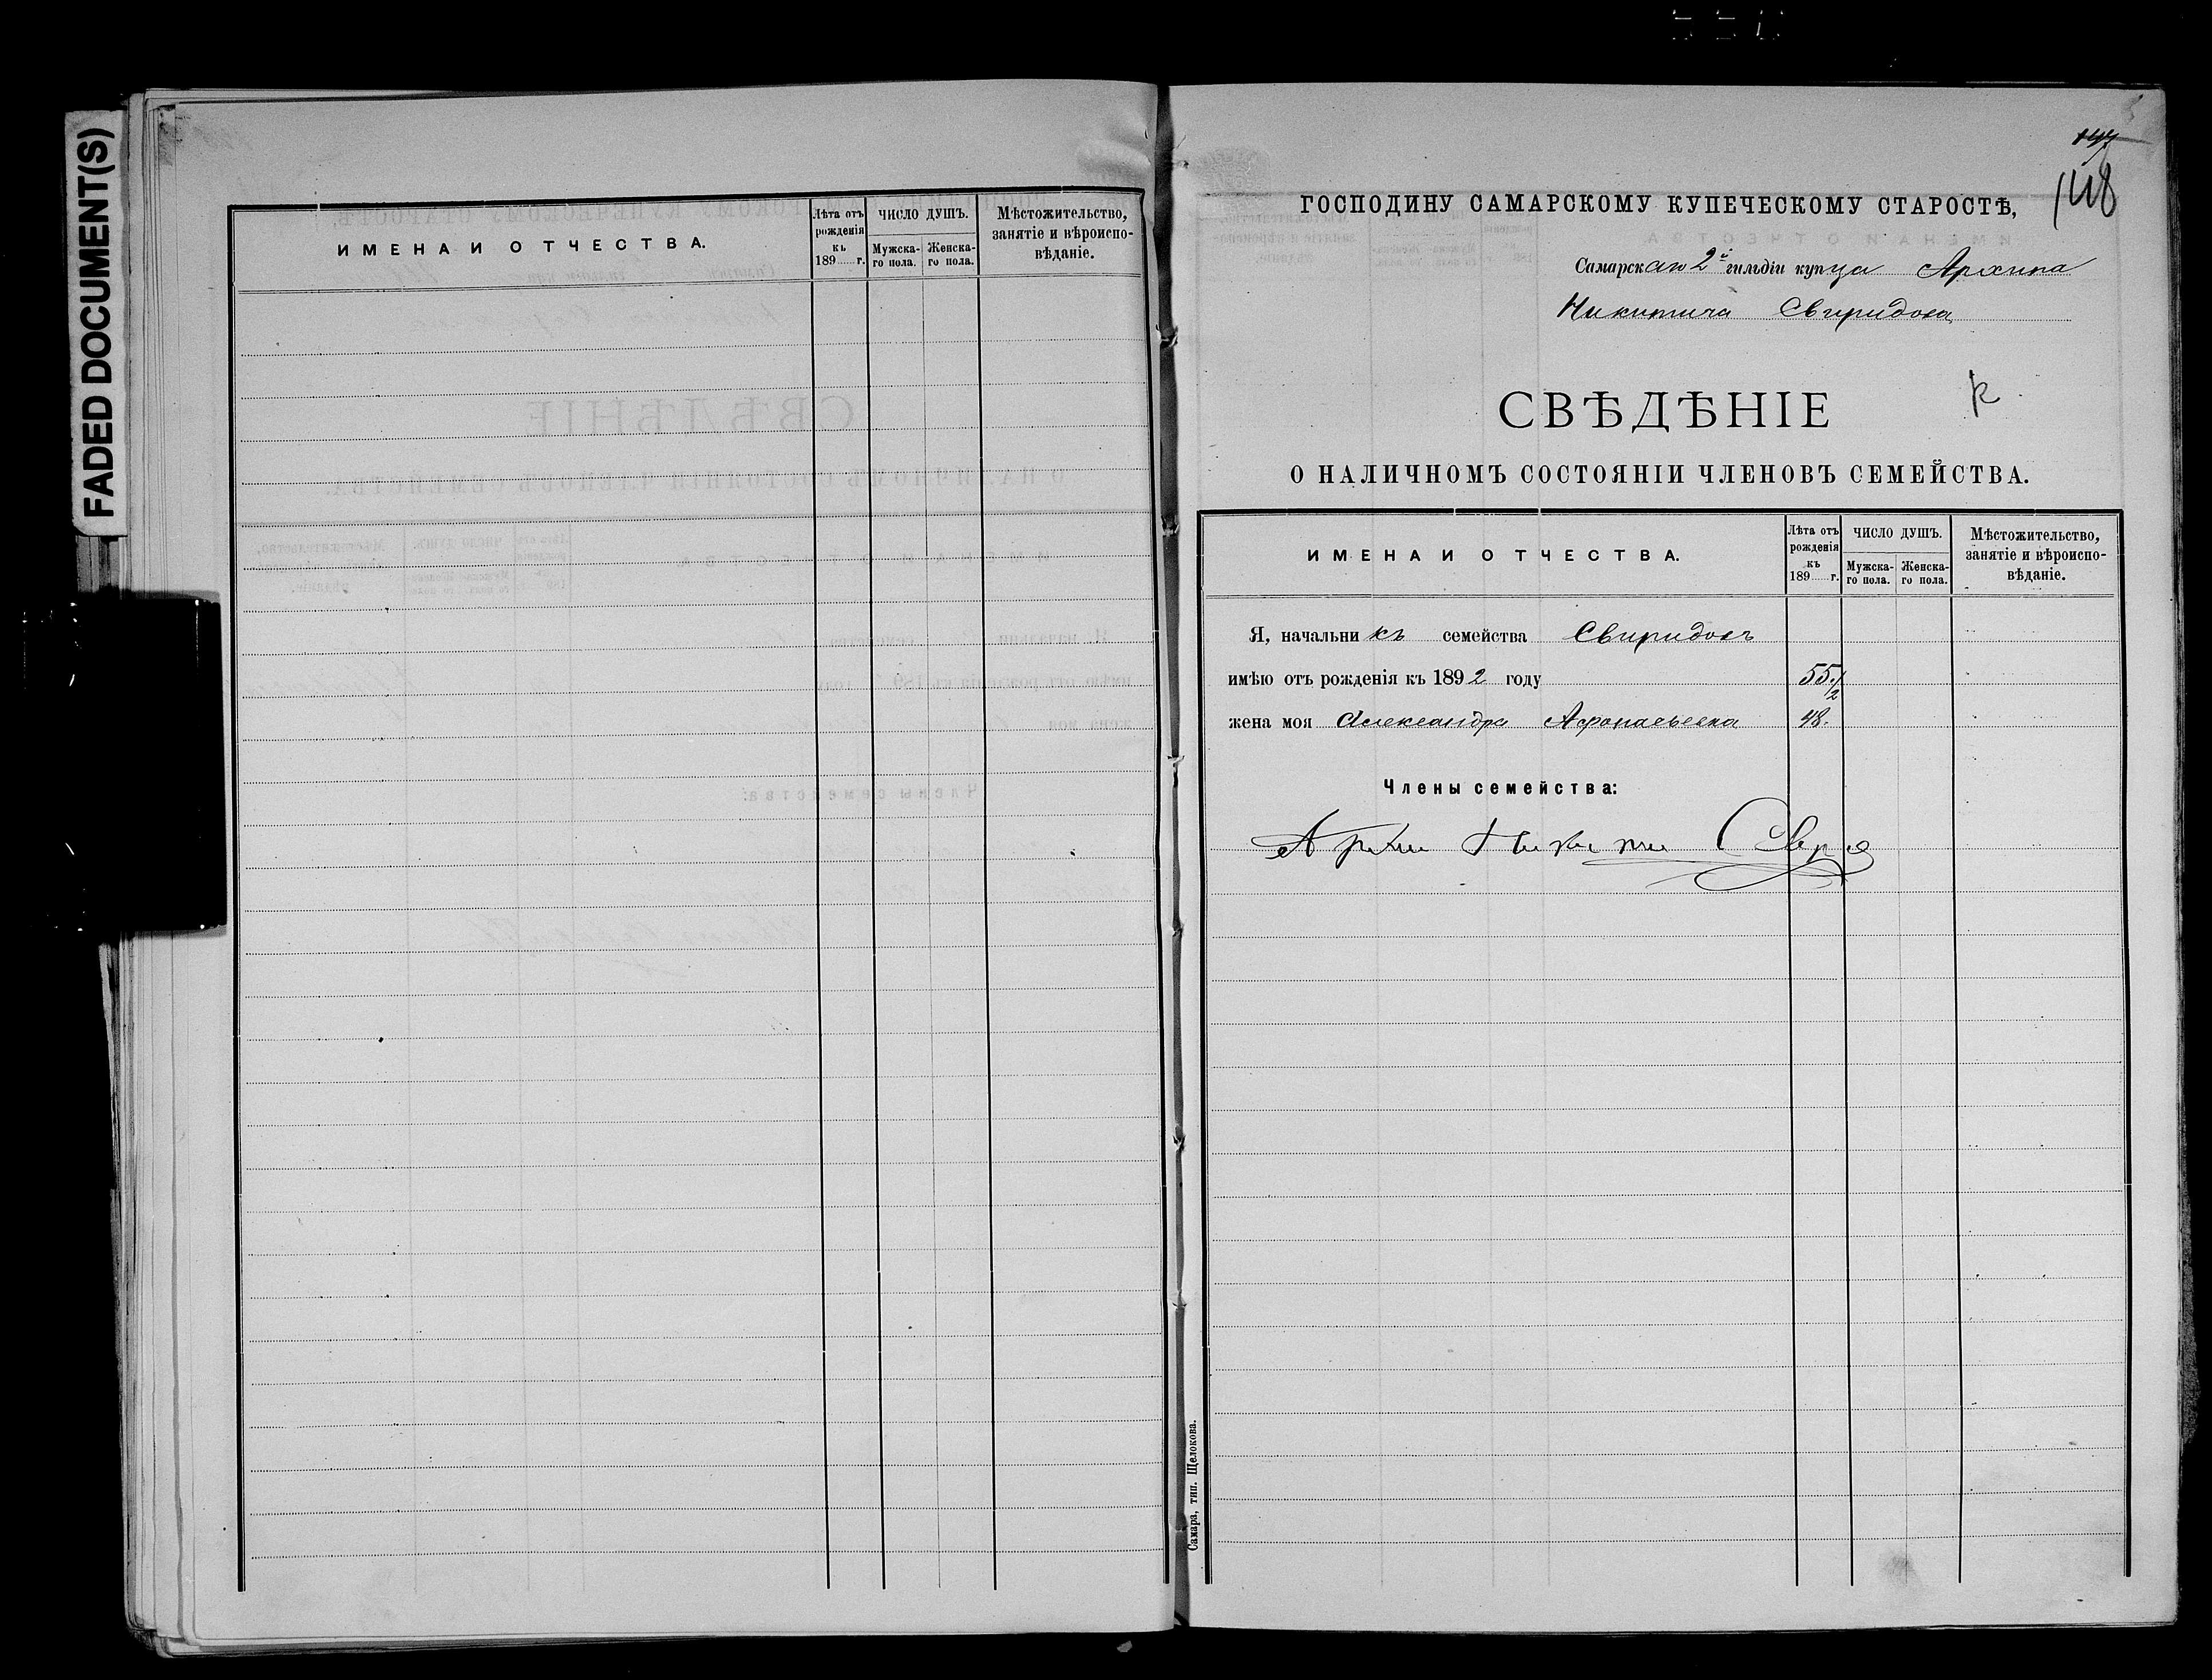 FADED DOCUMENT(S)
ИМЕНА И ОТЧЕСТВА.
Лѣта отъ рожденія къ 189 г.
ЧИСЛО ДУШЪ.
Мужска-го пола.
Женска-го пола.
Мѣстожительство, занятіе и вѣроиспо-вѣданіе.
147
148
ГОСПОДИНУ САМАРСКОМУ КУПЕЧЕСКОМУ СТАРОСТѢ,
Самарскаго 2й гильдіи купца Архипа
Никитича Свиридова
СВѢДѢНІЕ
О НАЛИЧНОМЪ СОСТОЯНІИ ЧЛЕНОВЪ СЕМЕЙСТВА.
ИМЕНА И ОТЧЕСТВА.
Лѣта отъ рожденія къ 189 г.
ЧИСЛО ДУШЪ.
Мужска-го пола.
Женска-го пола.
Мѣстожительство, занятіе и вѣроиспо-вѣданіе.
Я, начальникъ семейства Свиридовъ
имѣю отъ рожденія къ 1892 году 55 1/2
жена моя Александра Афонасьевна 48.
Члены семейства:
Самара, тип. Щелокова.